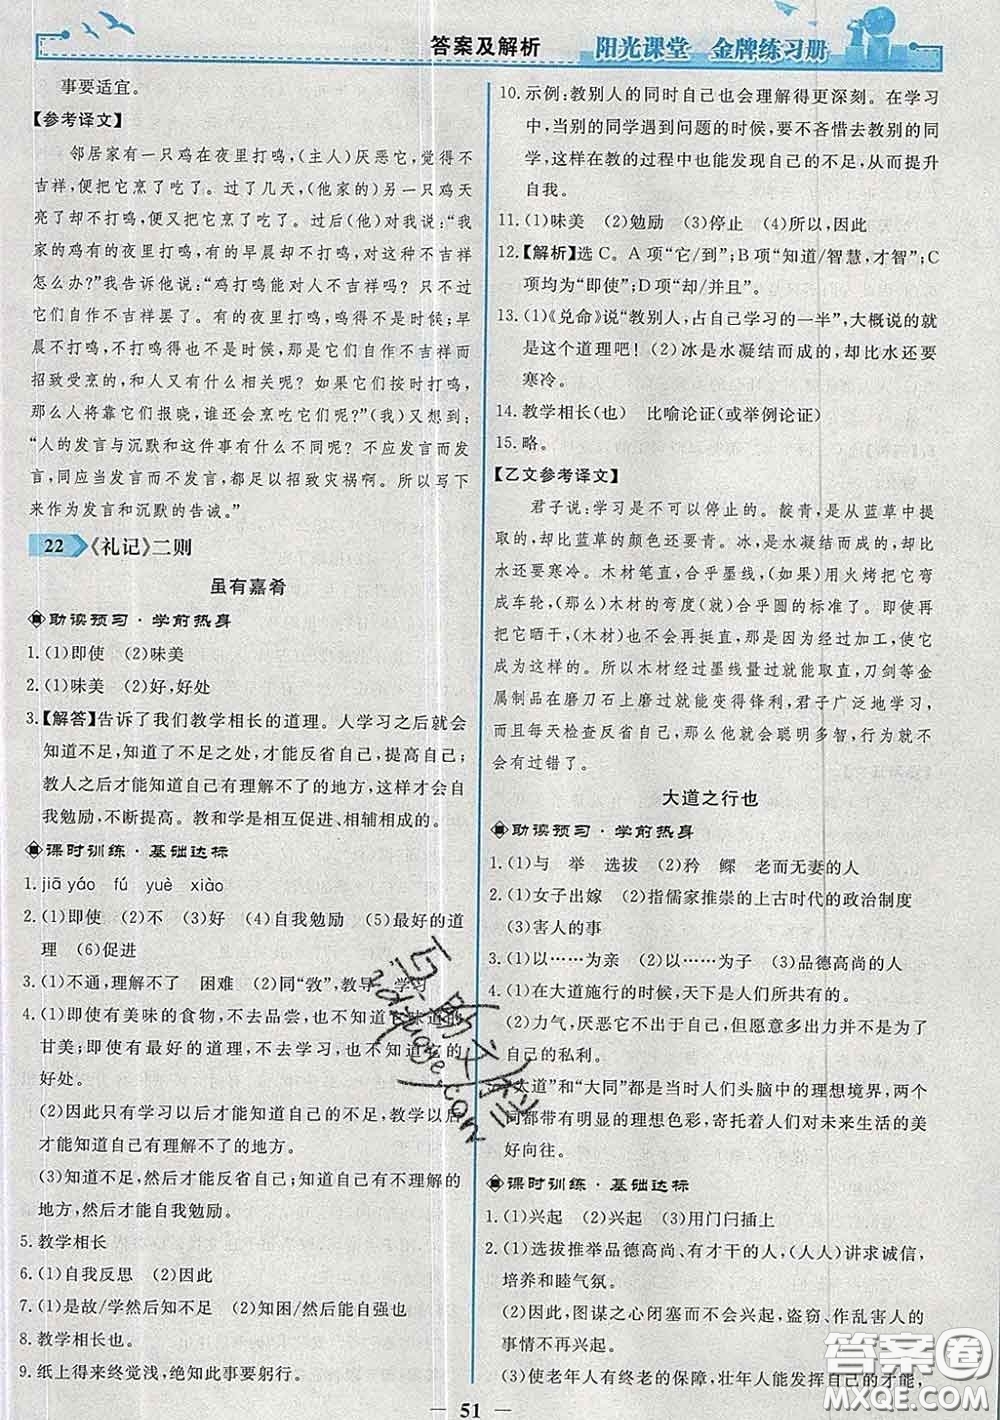 答案及解析
阳光课堂 金牌练习册
事要适宜。
【参考译文】
邻居家有一只鸡在夜里打鸣,(主人)厌恶它,觉得不
吉祥,便把它烹了吃了。过了几天,(他家的)另一只鸡天
亮了却不打鸣,又把它烹了吃了。过后(他)对我说:“我
家的鸡有的夜里打鸣,有的早晨却不打鸣,它们不吉祥
怎么办呢?”我告诉他说:“鸡打鸣能对人不吉祥吗?不过
它们自作不吉祥罢了。有的夜里打鸣,不是时候;早
晨不打鸣,不打鸣得也不是时候,那么它们自作不吉祥而
招致受烹的,和人又有什么相关呢?如果它们按时打鸣,
那么人将靠它们报晓,谁还会烹吃它们呢?”(我)又想到:
“人的发言与沉默和这件事有什么不同呢?不应发言而发
言,同应当发言而不发言,都足以招致灾祸啊。所以写下
来作为发言和沉默的告诫。”
22 《礼记》二则
虽有嘉肴
助读预习·学前热身
1.(1)即使 (2)味美
2.(1)味美 (2)好,好处
3.【解答】告诉了我们教学相长的道理。人学习之后就会
知道不足,知道了不足之处,才能反省自己,提高自己;
教人之后才能知道自己有理解不了的地方,这样才会自
我勉励,不断提高。教和学是相互促进、相辅相成的。
课时训练·基础达标
1.jiā yáo fú yuè xiào
2.(1)即使 (2)不 (3)好 (4)自我勉励 (5)最好的道
理 (6)促进
3.(1)不通,理解不了 困难 (2)同“敩”,教导 学习
4.(1)即使有美味的食物,不去品尝,也不知道它味道的
甘美;即使有最好的道理,不去学习,也不知道它的
好处。
(2)因此只有学习以后才能知道自己的不足,教学以后
才能知道自己有理解不了的地方。
(3)知道不足,然后才能反省自己;知道不能理解的地
方,然后才能自我勉励。
5.教学相长
6.(1)自我反思 (2)因此
7.(1)是故/学然后知不足 (2)知困/然后能自强也
8.教学相长也。
9.纸上得来终觉浅,绝知此事要躬行。
10.示例:教别人的同时自己也会理解得更深刻。在学习
中,当别的同学遇到问题的时候,要不吝惜去教别的同
学,这样在教的过程中也能发现自己的不足,从而提升
自我。
11.(1)味美 (2)勉励 (3)停止 (4)所以,因此
12.【解析】选C。A项“它/到”;B项“知道/智慧,才智”;C
项均为“即使”;D项“却/并且”。
13.(1)《兑命》说“教别人,占自己学习的一半”,大概说的就
是这个道理吧! (2)冰是水凝结而成的,却比水还要
寒冷。
14.教学相长(也) 比喻论证(或举例论证)
15.略。
【乙文参考译文】
君子说:学习是不可以停止的。靛青,是从蓝草中
提取的,却比蓝草的颜色还要青。冰,是水凝结而成的,却
比水还要寒冷。木材笔直,合乎墨线,如果用火烤把它弯
成车轮,(那么)木材的弯度(就)合乎圆的标准了。即使再
把它晒干,(木材)也不会再挺直,那是因为经过加工,使它
成为这样的。所以木材经过墨线量过就能取直,刀剑等金
属制品在磨刀石上磨过就能变得锋利,君子广泛地学习,
而且每天检查反省自己,那么他就会聪明多智,行为就不
会有过错了。
大道之行也
助读预习·学前热身
1.(1)与 举 选拔 (2)矜 鳏 老而无妻的人
2.(1)女子出嫁 (2)指儒家推崇的上古时代的政治制度
(3)害人的事
3.(1)以……为亲 (2)以……为子 (3)品德高尚的人
4.(1)在大道施行的时候,天下是人们所共有的。
(2)力气,厌恶它不出于自己,但愿意多出力并不是为了
自己的私利。
“大道”和“大同”都是当时人们头脑中的理想境界,两个
词都带有明显的理想色彩,寄托着人们对未来生活的美
好向往。
课时训练·基础达标
1.(1)兴起 (2)兴起 (3)用门闩插上
2.(1)选拔推举品德高尚、有才干的人,(人人)讲求诚信,
培养和睦气氛。
(2)因此,图谋之心闭塞而不会兴起,盗窃、作乱害人的
事情不再兴起。
(3)使老年人有终老的保障,壮年人能发挥自己的才能,
51
答案圈
MXQE.COM